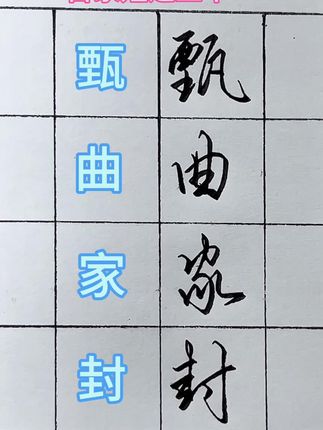 甄 甄
曲 曲
家 家
封 封